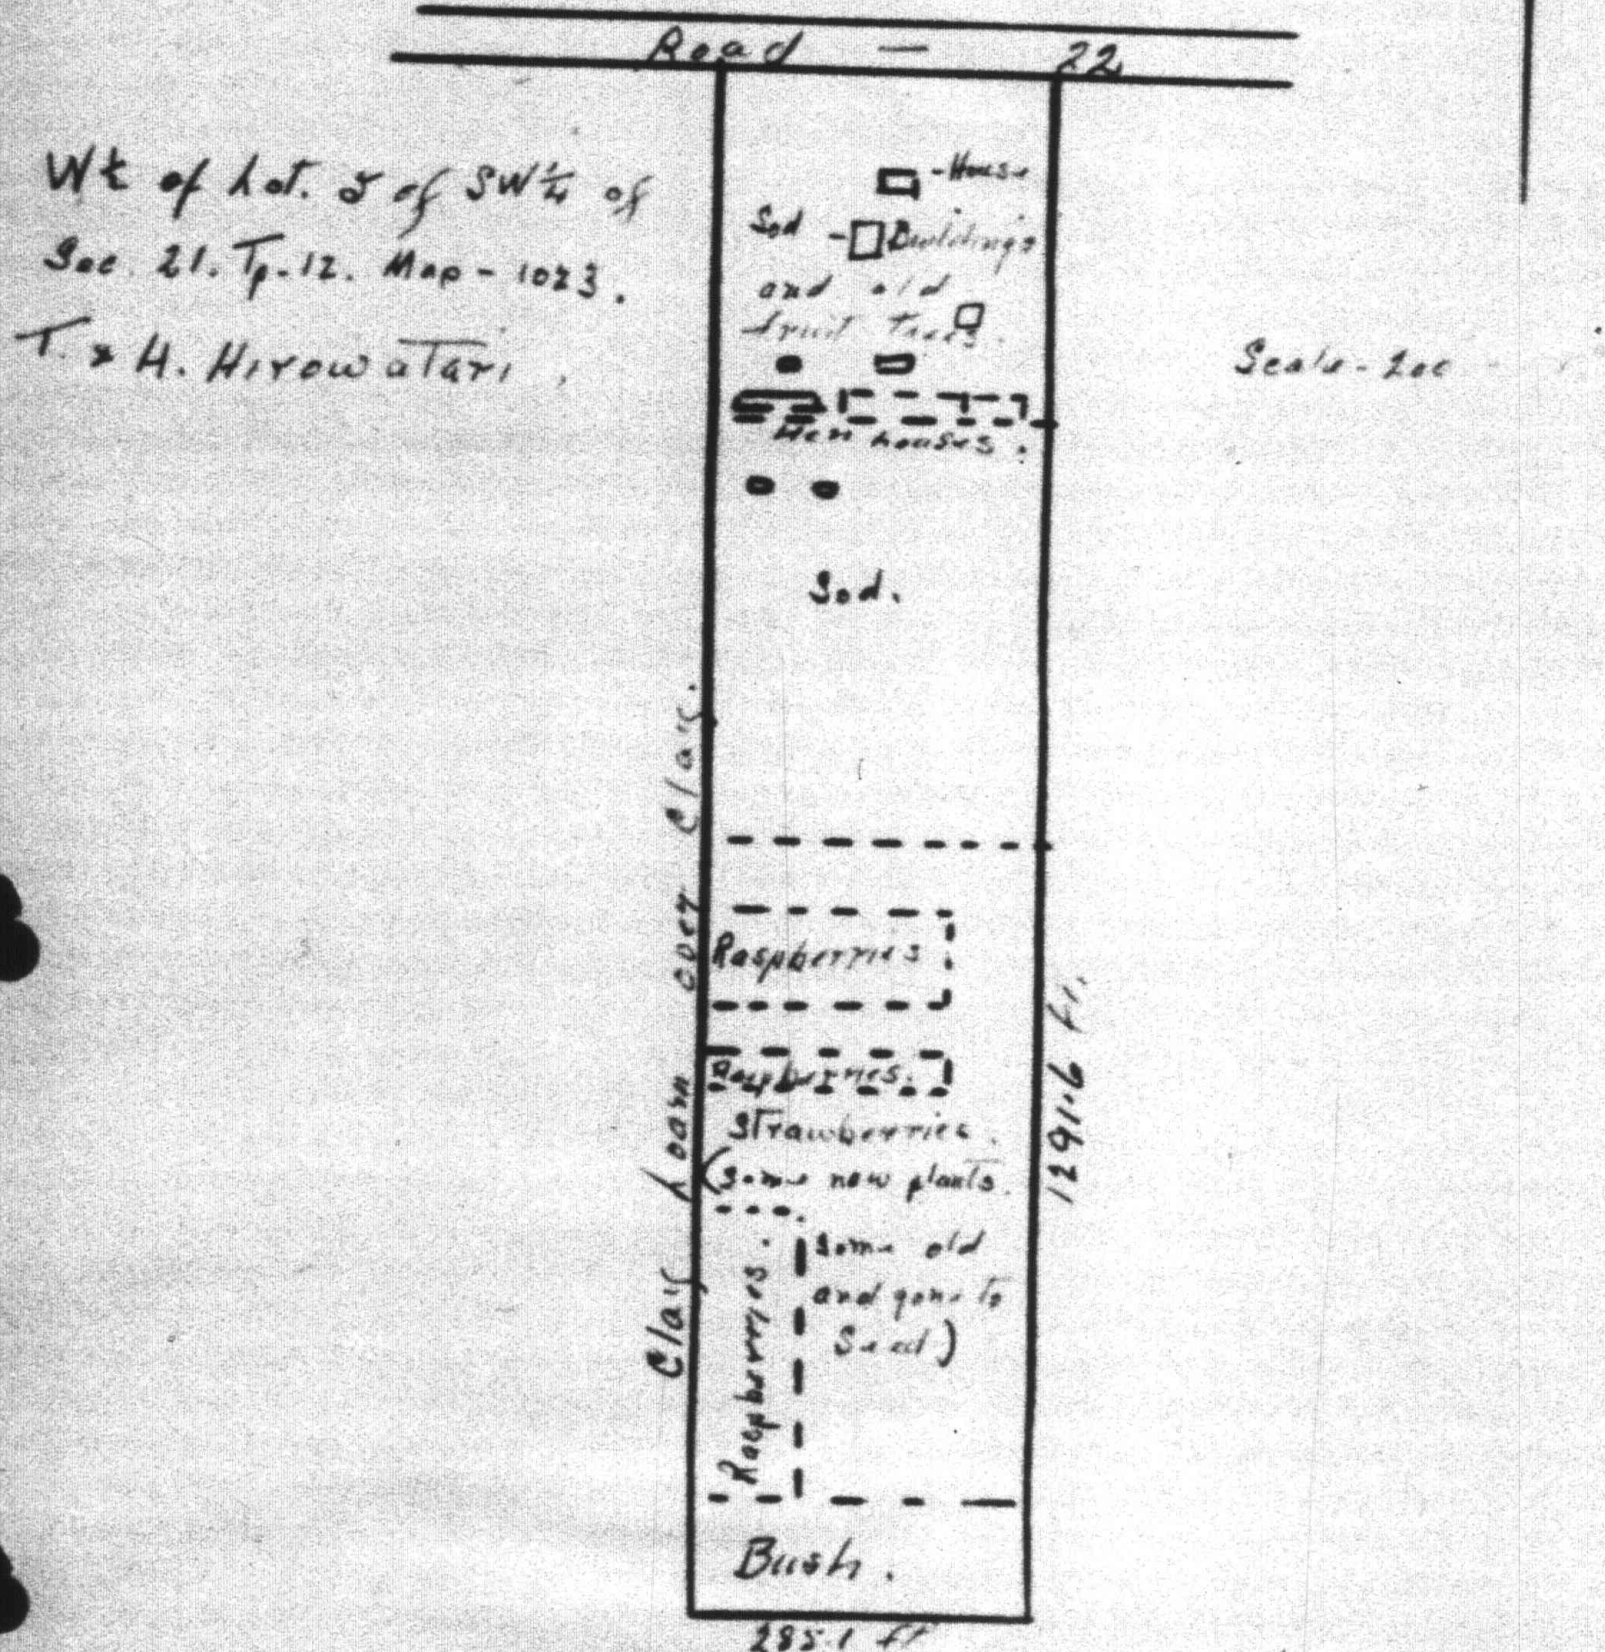 Road — 22
W½ of Lot. 5 of SW¼ of
Sec. 21. Tp. 12. Map - 1023.
T. & H. Hirowatari,
Scale - 200
- House
Sod - Buildings
and old
fruit trees.
Hen houses.
Sod.
Clay Loam over Clay.
Raspberries
Raspberries.
Strawberries.
(some new plants.
some old
and gone to
Seed)
Raspberries.
1291.6 ft.
Bush.
285.1 ft